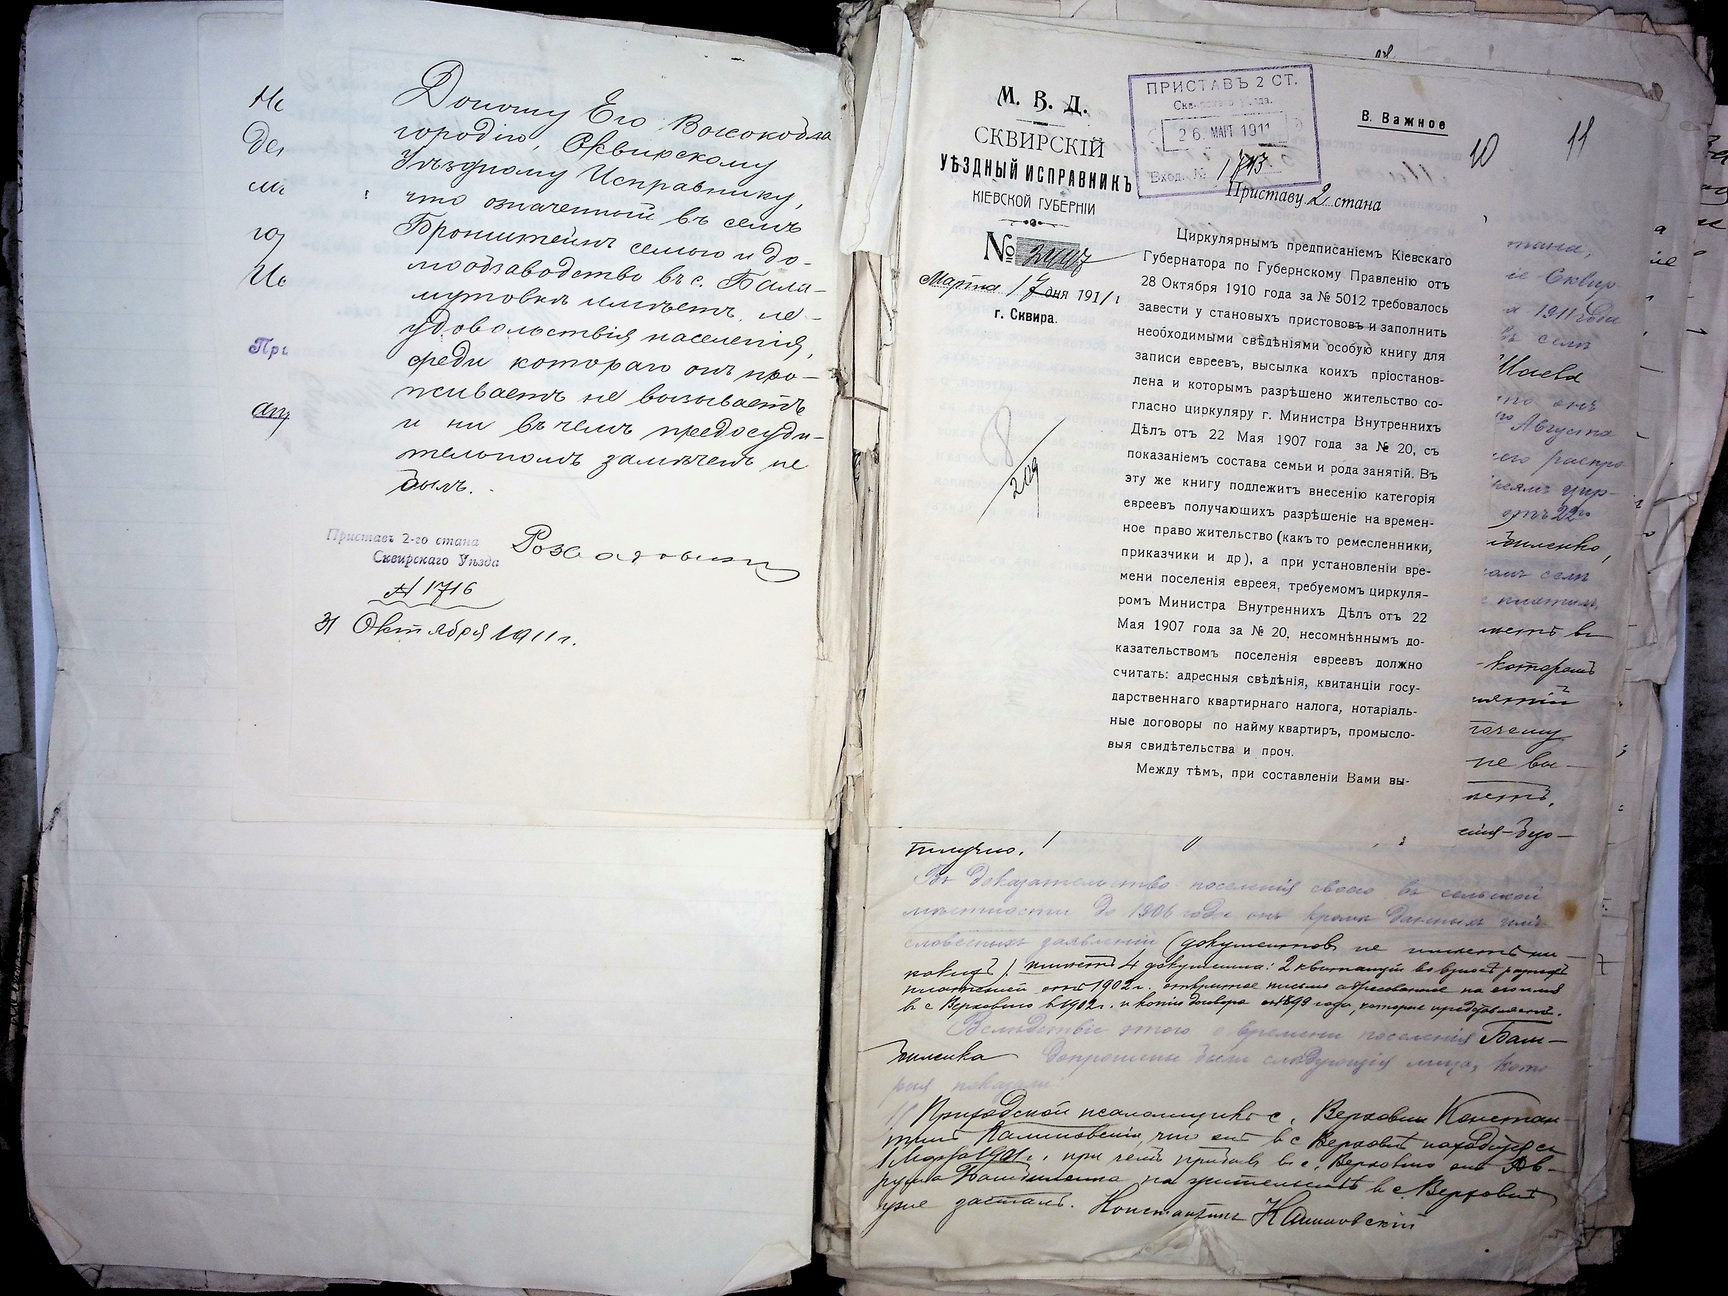 Доношу Его Высокобла
городію, Сквирскому
Уѣздному Исправнику,
что означенный въ семъ
Бронштейнъ семью и до-
мообзаводство въ с. Бала-
мутовкѣ имѣетъ, не-
удовольствія населенія,
среди котораго онъ про-
живаетъ не вызываетъ
и ни въ чемъ предосуди-
тельномъ замѣченъ не
былъ.
Приставъ 2-го стана
Сквирскаго Уѣзда
№ 1716
31 Октября 1911 г.
М. В. Д.
СКВИРСКІЙ
УѢЗДНЫЙ ИСПРАВНИКЪ
КІЕВСКОЙ ГУБЕРНІИ
№
Марта 17 дня 1911 г.
г. Сквира.
8/209
ПРИСТАВЪ 2 СТ.
Сквирскаго уѣзда.
26 МАРТ 1911
Вход. №
В. Важное
10 11
Приставу 2 стана
Циркулярнымъ предписаніемъ Кіевскаго
Губернатора по Губернскому Правленію отъ
28 Октября 1910 года за № 5012 требовалось
завести у становыхъ пристововъ и заполнить
необходимыми свѣдѣніями особую книгу для
записи евреевъ, высылка коихъ пріостанов-
лена и которымъ разрѣшено жительство со-
гласно циркуляру г. Министра Внутреннихъ
Дѣлъ отъ 22 Мая 1907 года за № 20, съ
показаніемъ состава семьи и рода занятій. Въ
эту же книгу подлежитъ внесенію категорія
евреевъ получающихъ разрѣшеніе на времен-
ное право жительство (какъ то ремесленники,
приказчики и др), а при установленіи вре-
мени поселенія еврея, требуемомъ циркуля-
ромъ Министра Внутреннихъ Дѣлъ отъ 22
Мая 1907 года за № 20, несомнѣннымъ до-
казательствомъ поселенія евреевъ должно
считать: адресныя свѣдѣнія, квитанціи госу-
дарственнаго квартирнаго налога, нотаріаль-
ные договоры по найму квартиръ, промысло-
выя свидѣтельства и проч.
Между тѣмъ, при составленіи Вами вы-
Въ доказательство поселенія своего въ сельской
мѣстности до 1906 года онъ кромѣ данныхъ имъ
словесныхъ заявленій (документовъ не имѣетъ ни-
какихъ) имѣетъ 4 документа: 2 квитанціи
отъ 1902 г. открытое письмо адресованное на его имя
въ с Верховню въ 1902 г. и копію договора отъ 1899 года, которые представляетъ.
Вслѣдствіе этого о времени поселенія
допрошены были слѣдующія лица, кото
рыя показали
Приходской псаломщикъ с. Верховни Констан-
тинъ Калиновскій, что онъ въ с Верховнѣ находится съ
1 Марта 1901 г., при чемъ прибывъ въ с. Верховню онъ Ав-
рума на жительствѣ въ с Верховнѣ
уже засталъ. Константинъ Калиновскій